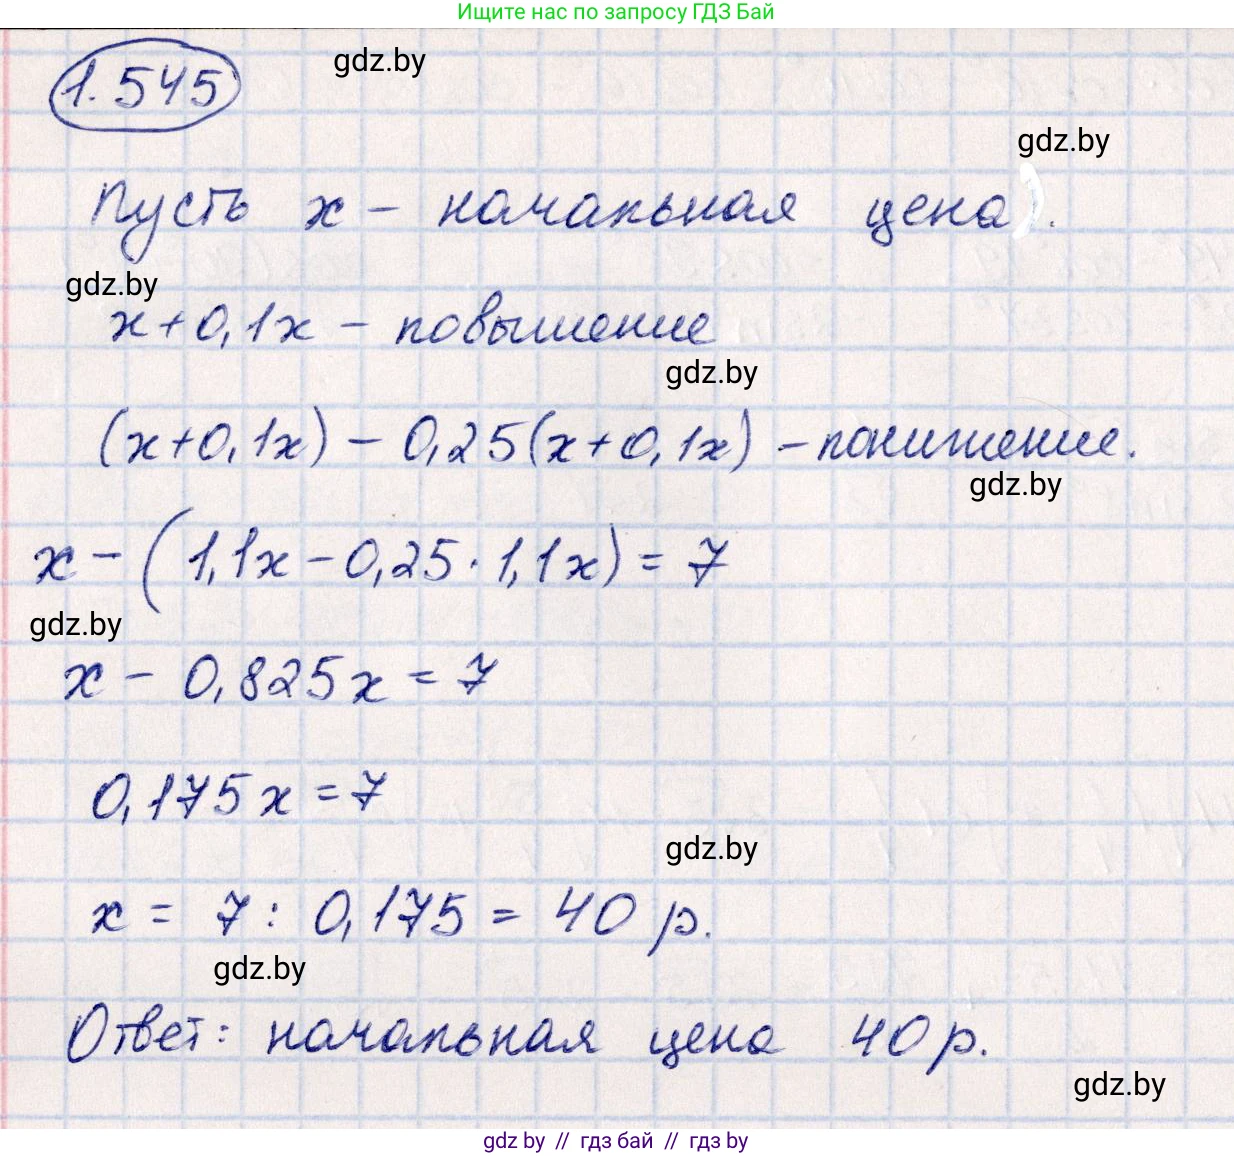 Ищите нас по запросу ГДЗ Бай
1.545
gdz.by
gdz.by
Пусть x – начальная цена.
gdz.by
x+0,1x – повышение
gdz.by
(x+0,1x) – 0,25(x+0,1x) – понижение.
gdz.by
x – (1,1x – 0,25 · 1,1x) = 7
gdz.by
x – 0,825x = 7
0,175x = 7
gdz.by
x = 7 : 0,175 = 40 р.
gdz.by
Ответ: начальная цена 40 р.
gdz.by
gdz by // гдз бай // гдз by